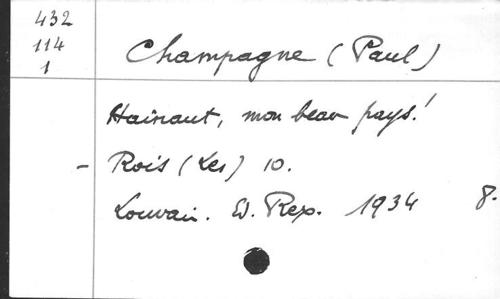 432
114
1
Champagne (Paul)
Hainaut, mon beau pays!
- Rois (Les) 10.
Louvain. Ed. Rex. 1934 8.